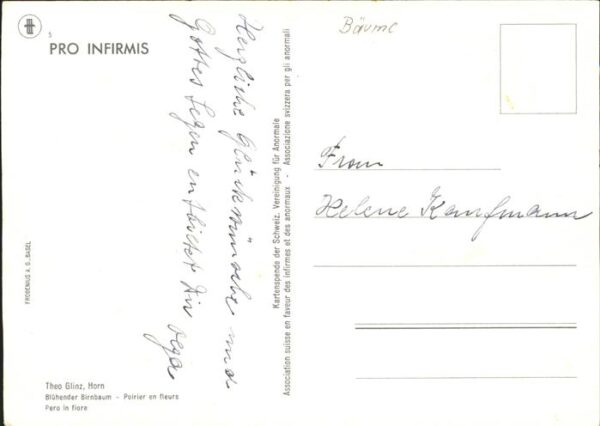 5
PRO INFIRMIS
Herzliche Glückwünsche und
Gottes Segen entbietet Dir Olga
FROBENIUS A. G., BASEL
Theo Glinz, Horn
Blühender Birnbaum - Poirier en fleurs
Pero in fiore
Kartenspende der Schweiz. Vereinigung für Anormale
Association suisse en faveur des infirmes et des anormaux - Associazione svizzera per gli anormali
Bäume
Frau
Helene Kaufmann